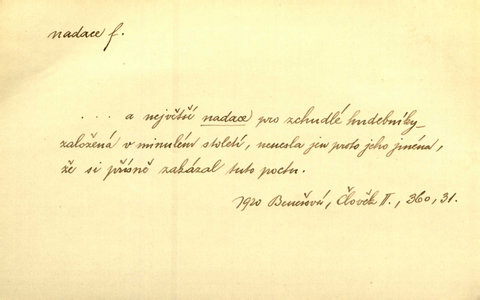 nadace f.
. . . . a největší nadace pro zchudlé hudebníky
založená v minulém století, nenesla jen proto jeho jména,
že si přísně zakázal tuto poctu.
1920 Benešová, Člověk II., 360, 31.